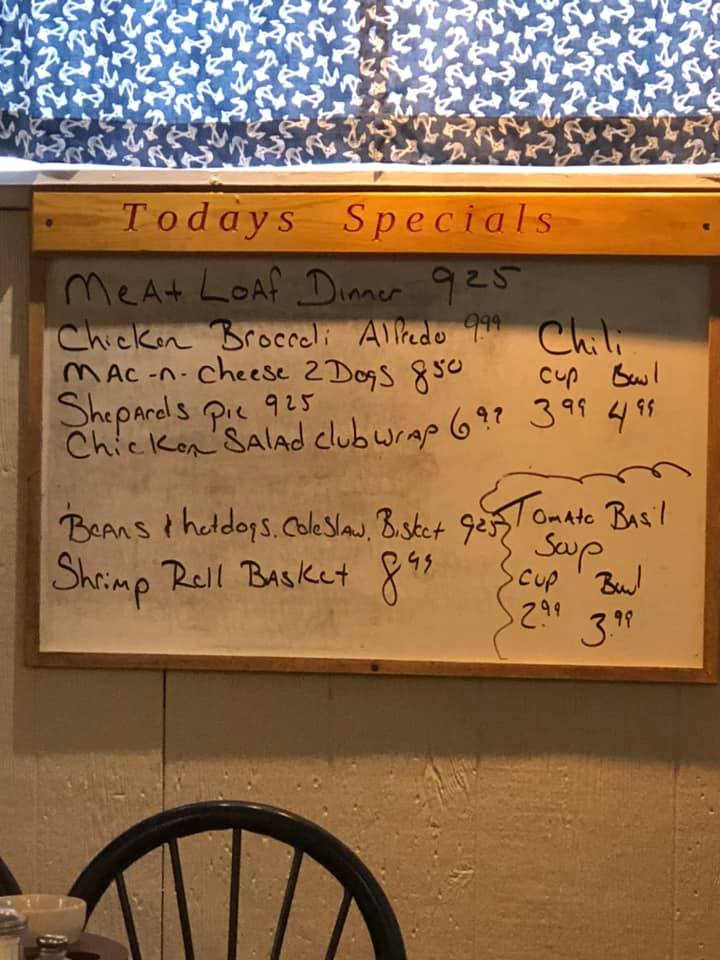 Todays Specials
Meat Loaf Dinner 925
Chicken Broccoli Alfredo 9.99
Mac-n-cheese 2 Dogs 850
Shepards pie 925
Chicken Salad club wrap 6.99
Beans & hotdogs. Coleslaw. Bisket 925
Shrimp Roll Basket 8 99
Chili
cup Bowl
3 99 4 99
Tomato Basil
Soup
cup Bowl
2.99 3.99